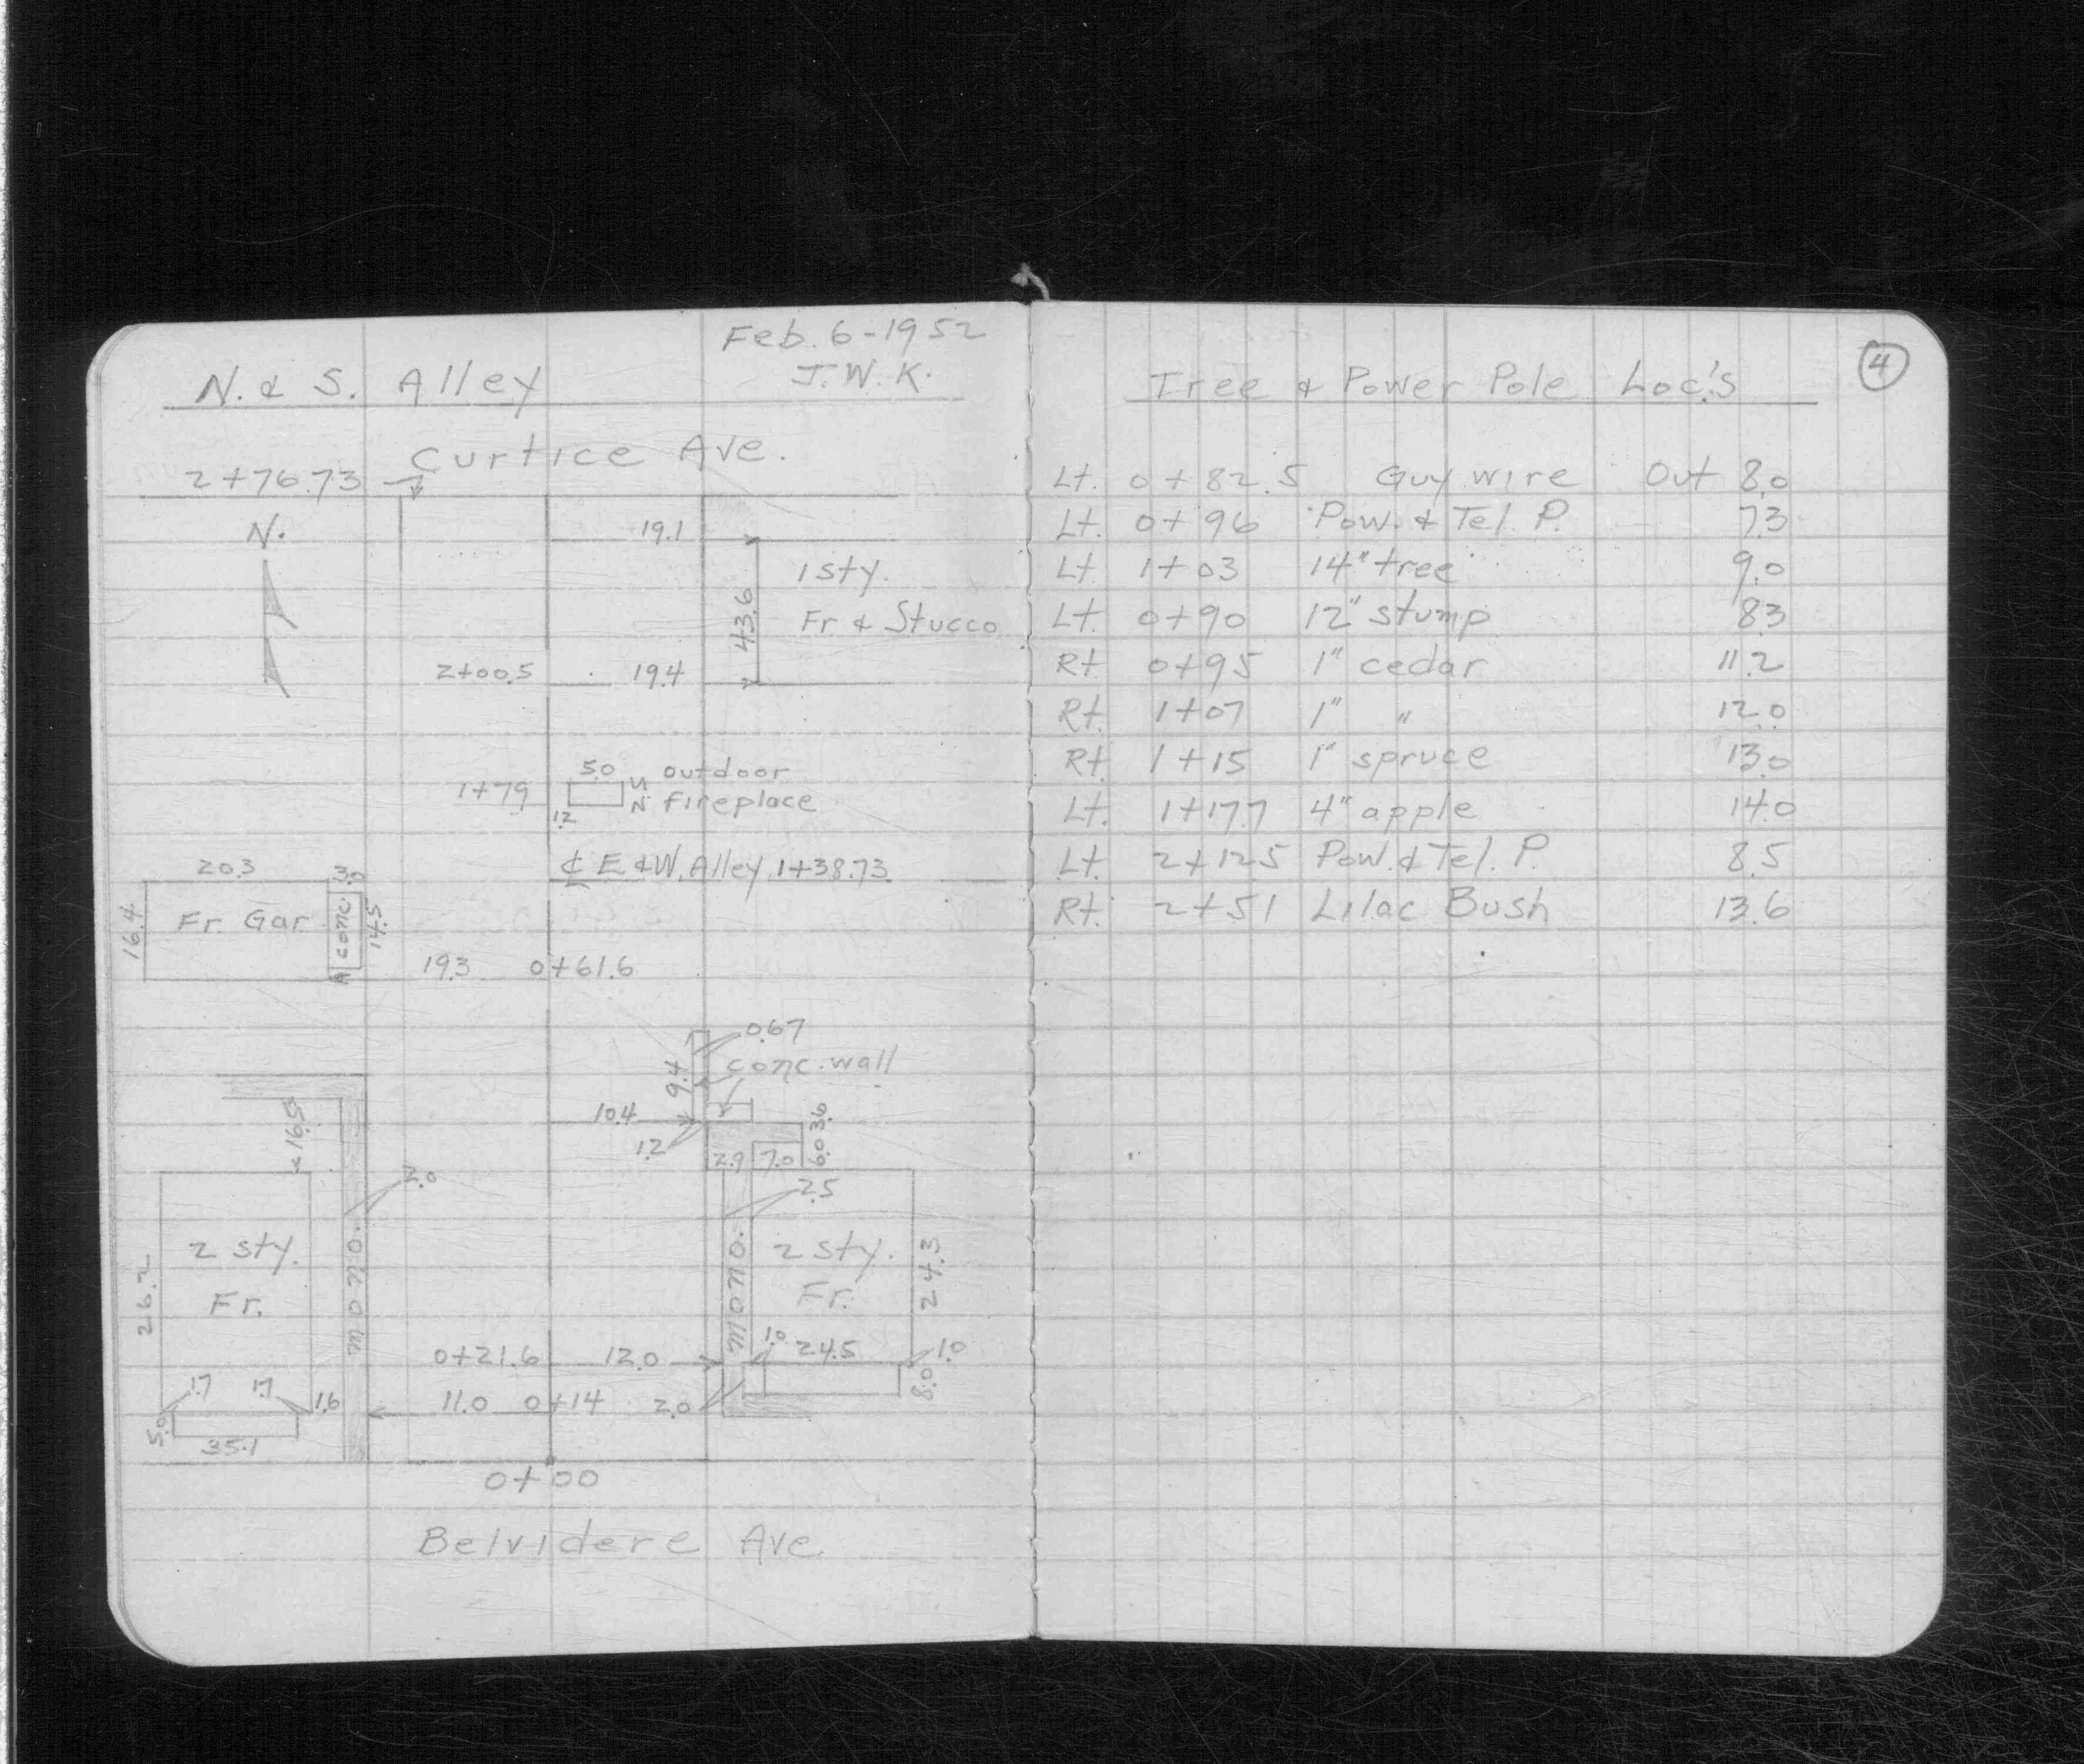 Feb. 6-1952
N. & S. Alley
J.W.K.
Curtice Ave.
2+76.73
N.
19.1
1 sty.
Fr & Stucco
43.6
2+00.5
19.4
5.0
outdoor
1+79
fireplace
1.2
℄ E & W. Alley 1+38.73
20.3
3.0
16.4
Fr. Gar
conc.
14.5
19.3
0+61.6
0.67
conc. wall
9.4
10.4
1.2
3.6
6.0
2.9
7.0
16.5
2.0
2.5
2 sty.
Fr.
26.2
mono.
mono.
2 sty.
Fr.
24.3
0+21.6
12.0
1.0
24.5
1.0
8.0
1.7
1.7
1.6
11.0
0+14
2.0
5.0
35.1
0+00
Belvidere Ave.
4
Tree & Power Pole Loc.'s
Lt. 0+82.5 Guy wire Out 8.0
Lt. 0+96 Pow. & Tel. P. 7.3
Lt. 1+03 14" tree 9.0
Lt. 0+90 12" stump 8.3
Rt. 0+95 1" cedar 11.2
Rt. 1+07 1" " 12.0
Rt. 1+15 1" spruce 13.0
Lt. 1+17.7 4" apple 14.0
Lt. 2+12.5 Pow. & Tel. P. 8.5
Rt. 2+51 Lilac Bush 13.6